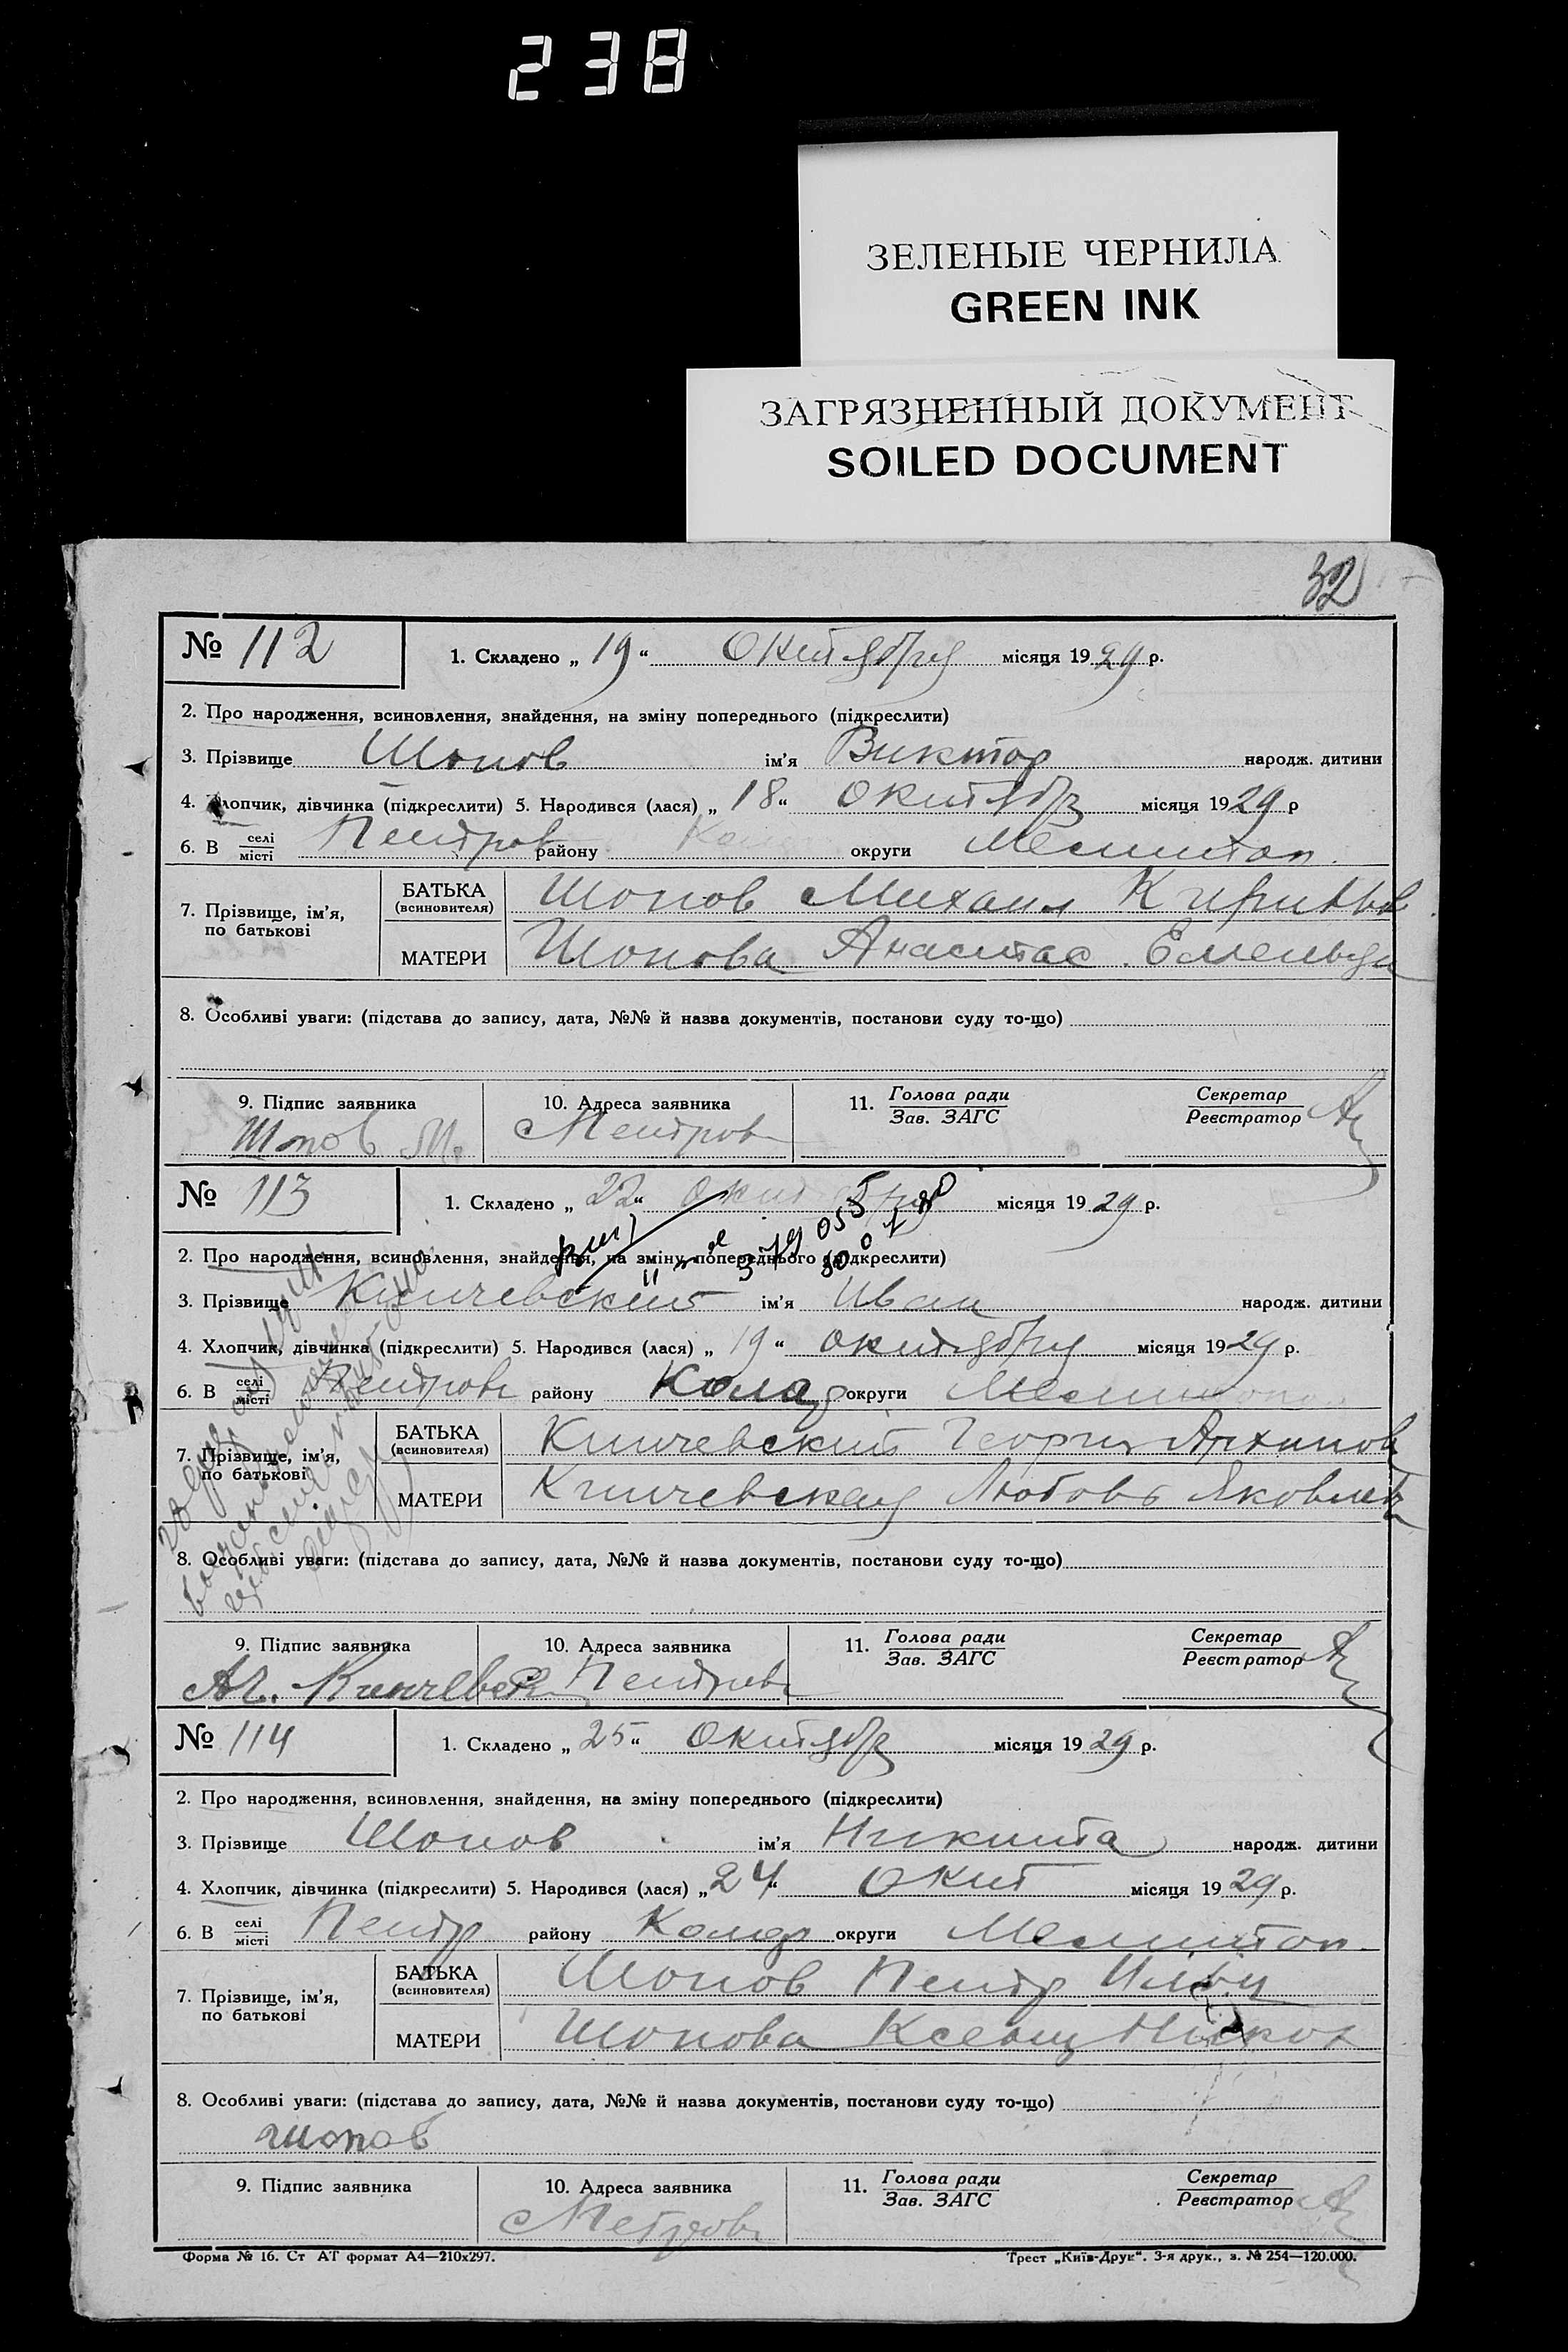 238
ЗЕЛЕНЫЕ ЧЕРНИЛА
GREEN INK
ЗАГРЯЗНЕННЫЙ ДОКУМЕНТ
SOILED DOCUMENT
32
№ 112
1. Складено „ 19 “ Октября місяця 1929 р.
2. Про народження, всиновлення, знайдення, на зміну попереднього (підкреслити)
3. Прізвище Шопов ім'я Виктор народж. дитини
4. Хлопчик, дівчинка (підкреслити) 5. Народився (лася) „ 18 “ Октябр місяця 1929 р
6. В селі/місті Петров району округи Мелитоп.
7. Прізвище, ім'я, по батькові
БАТЬКА (всиновителя) Шопов Михаил
МАТЕРИ Шопова Анастас. Емельян
8. Особливі уваги: (підстава до запису, дата, №№ й назва документів, постанови суду то-що)
9. Підпис заявника
10. Адреса заявника
11. Голова ради/Зав. ЗАГС
Секретар/Реєстратор
Шопов М.
с Петров
№ 113
1. Складено „ 22 “ місяця 1929 р.
2. Про народження, всиновлення, знайдення, на зміну попереднього (підкреслити)
3. Прізвище ім'я Иван народж. дитини
4. Хлопчик, дівчинка (підкреслити) 5. Народився (лася) „ 19 “ октября місяця 1929 р.
6. В селі/місті Петров району Колар округи
7. Прізвище, ім'я, по батькові
БАТЬКА (всиновителя) Георги Архипов
МАТЕРИ Любовь Яковлев
8. Особливі уваги: (підстава до запису, дата, №№ й назва документів, постанови суду то-що)
9. Підпис заявника
10. Адреса заявника
11. Голова ради/Зав. ЗАГС
Секретар/Реєстратор
Петров
№ 114
1. Складено „ 25 “ Октябр місяця 1929 р.
2. Про народження, всиновлення, знайдення, на зміну попереднього (підкреслити)
3. Прізвище Шопов ім'я Никита народж. дитини
4. Хлопчик, дівчинка (підкреслити) 5. Народився (лася) „ 24 “ Окт місяця 1929 р.
6. В селі/місті Петр району Колар округи Мелитоп.
7. Прізвище, ім'я, по батькові
БАТЬКА (всиновителя) Шопов Петр Ильи
МАТЕРИ Шопова Ксения
8. Особливі уваги: (підстава до запису, дата, №№ й назва документів, постанови суду то-що)
Шопов
9. Підпис заявника
10. Адреса заявника
11. Голова ради/Зав. ЗАГС
Секретар/Реєстратор
с Петров
Форма № 16. Ст АТ формат А4—210х297.
Трест „Київ-Друк“. 3-я друк., з. № 254—120.000.